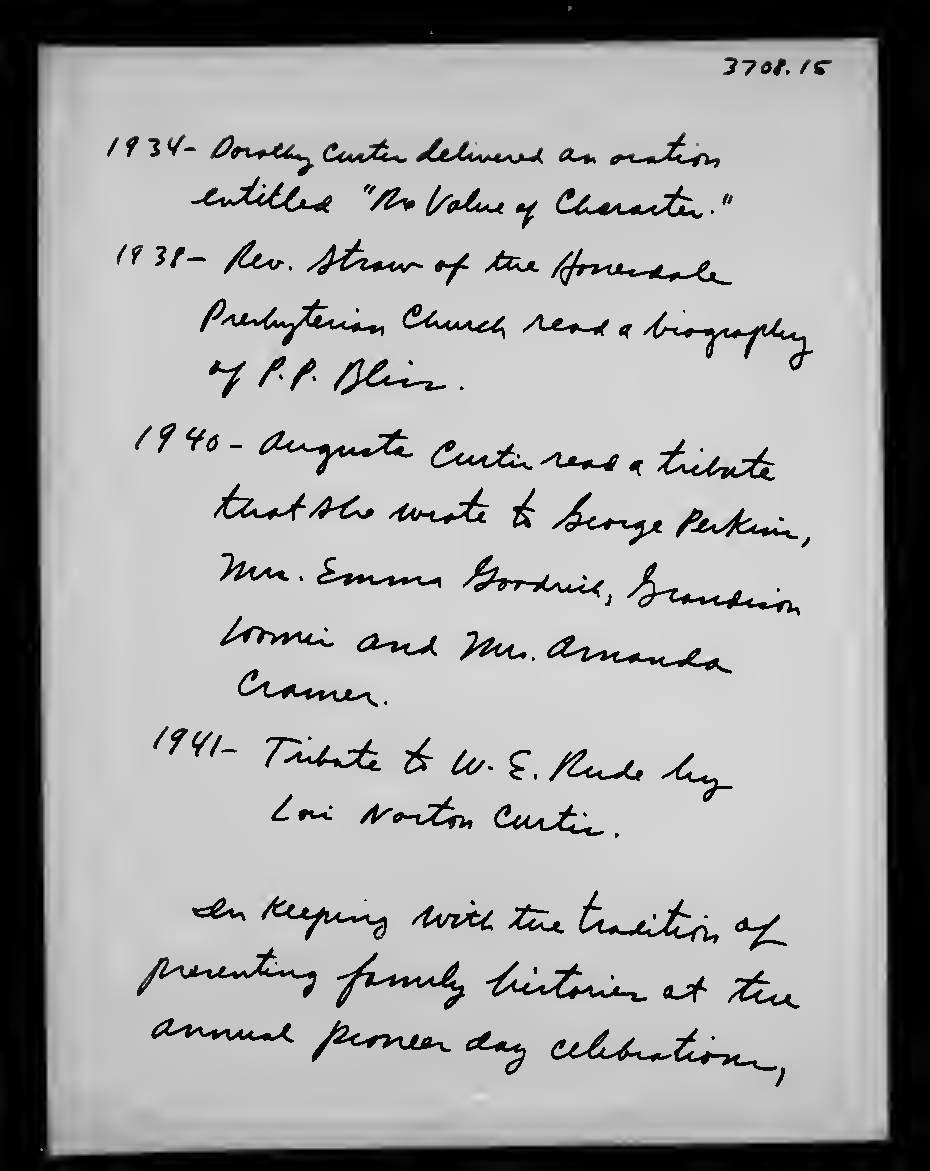 3708.15
1934- Dorothy Curtis delivered an oration
entitled "The Value of Character."
1938- Rev. Straw of the Honesdale
Presbyterian Church read a biography
of P.P. Bliss.
1940- Augusta Curtis read a tribute
that she wrote to George Perkins,
Mrs. Emma Goodrich, Grandison
Loomis and Mrs. Amanda
Cramer.
1941- Tribute to W. E. Rude by
Lori Norton Curtis.
In keeping with the tradition of
presenting family histories at the
annual pioneer day celebrations,